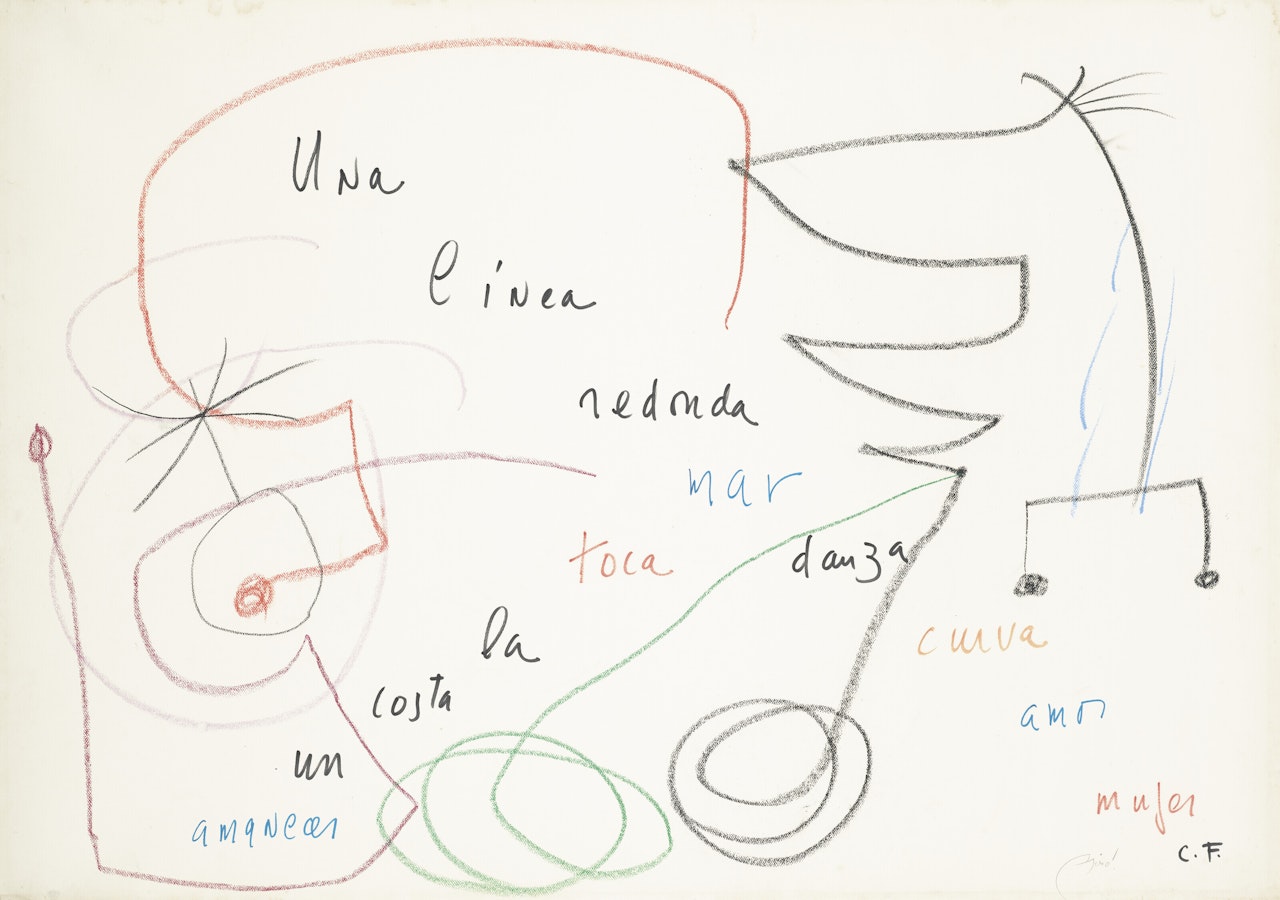 Una
línea
redonda
mar
toca danza
la curva
costa amor
un mujer
amanecer
C.F.